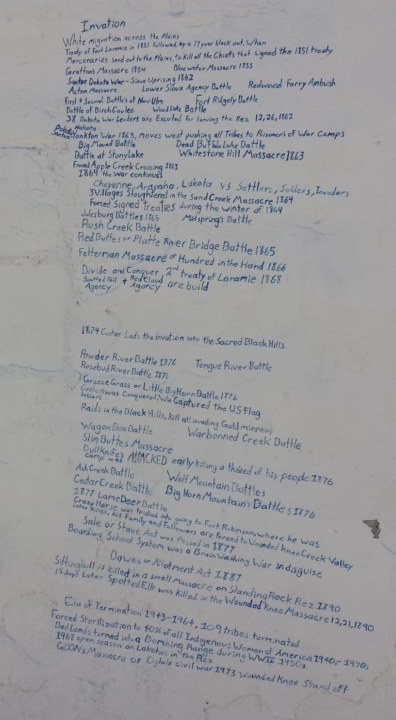 Invation
White migration across the Plains
Treaty of Fort Laramie in 1851 followed by a 17 year black out, When
Mercenaries send out to the Plains, to kill all the Chiefs that signed the 1851 treaty
Grattons Massacre 1854 Blue water Massacre 1855
Santee Dakota War - Sioux Uprising 1862
Acton Massacre Lower Sioux Agency Battle Redwood Ferry Ambush
First & Second Battles of New Ulm Fort Ridgely Battle
Battle of Birch Coulee Wood Lake Battle
38 Dakota War Leaders are Excuted for leaving the Rez 12,26,1862
Nakota
Yankton War 1863, moves west pushing all Tribes to Prisoners of War Camps
Big Mound Battle Dead Buffalo Lake Battle
Battle at Stony Lake Whitestone Hill Massacre 1863
Forced Apple Creek Crossing 1863
1864 the War continues
Cheyenne, Arapaho, Lakota vs Settlers, Soldiers, Invaders
3 Villages Slaughtered in the Sand Creek Massacre 1864
Forced Signed Treaties during the winter of 1864
Julesburg Battles 1865 Mudsprings Battle
Rush Creek Battle
Red Buttes or Platte River Bridge Battle 1865
Fetterman Massacre or Hundred in the Hand 1866
Divide and Conquer, 2nd treaty of Laramie 1868
Spotted Tail & Red Cloud
Agency Agency are build
1874 Custer Leds the invation into the Sacred Black Hills.
Powder River Battle 1876 Tongue River Battle
Rosebud River Battle 1876
Greasse Grass or Little Big Horn Battle 1876
Custer was Conquered, We Captured the US Flag
Raids in the Black Hills, kill all invading Gould minners
Wagon Box Battle Warbonned Creek Battle
Slim Buttes Massacre
Dullknifes camp was ATTACKED early killing a third of his people 1876
Ash Creek Battle Wolf Mountain Battles
Cedar Creek Battle Big Horn Mountain's Battles 1876
1877 Lame Deer Battle
Crazy Horse was tricked into going to Fort Robinson, where he was
later killed, his Family and Followers are forced to Wounded Knee Creek Valley
Sale or Starve Act was Passed in 1877
Boarding School System was a Brain Washing War in disguise
Dawes or Allotment Act 1887
Sitting bull is killed in a small Massacre on Standing Rock Rez 1890
15 days Later Spotted Elk was killed in the Wounded Knee Massacre 12,29,1890
Era of Termination 1943-1964, 109 tribes terminated
Forced Sterilization to 40% of all Indigenous Women of America 1940s-1970s
Bad Lands turned into a Bombing Range during WWII 1950s
1968 open season on Lakotas in the Rez
GOONs Massacre or Oglala civil war 1973 Wounded Knee Stand off